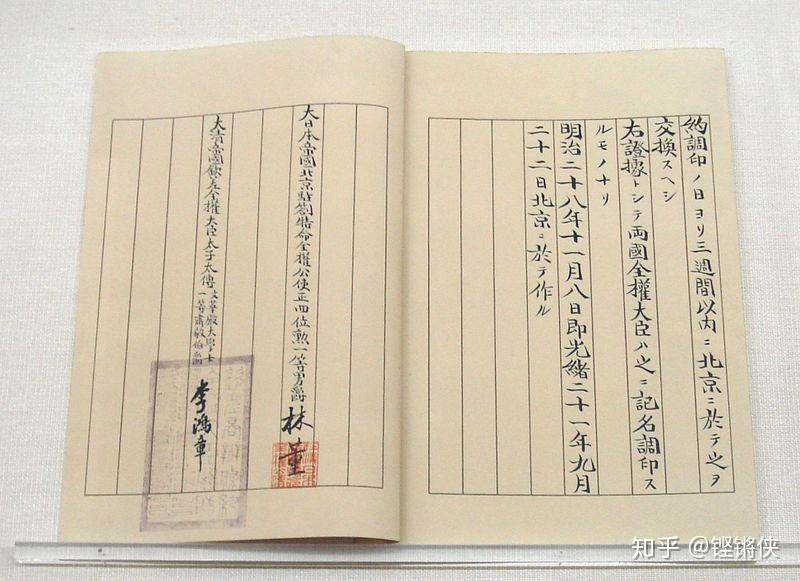 約調印ノ日ヨリ三週間以内ニ北京ニ於テ之ヲ
交換スヘシ
右證據トシテ両國全權大臣ハ之ニ記名調印ス
ルモノナリ
明治二十八年十一月八日即光緒二十一年九月
二十二日北京ニ於テ作ル
大日本帝國北京駐劄特命全權公使正四位勲一等男爵 林董
大清帝國欽差全權大臣太子太傅
文華殿大學士
一等肅毅伯爵
李鴻章
知乎 @铿锵侠